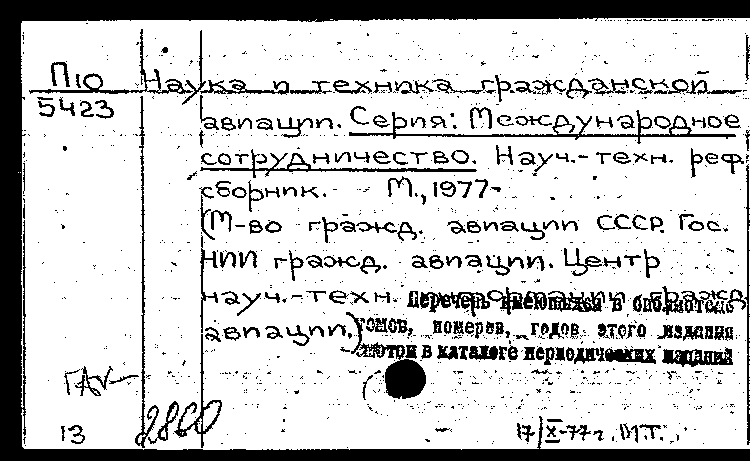 П10 Наука и техника гражданской
5423
авиации. Серия: Международное
сотрудничество. Науч.-техн. реф.
сборник. - М., 1977-
(М-во гражд. авиации СССР. Гос.
НИИ гражд. авиации. Центр
науч.-техн. информации гражд.
авиации.)
Перечень имеющихся в библиотеке
томов, номеров, годов этого издания
в каталоге периодических изданий
13 2860 17/X-77 г. М.Т.